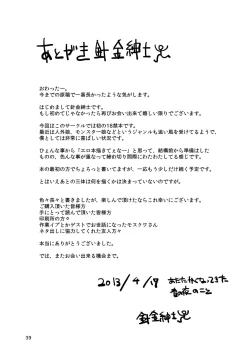 あとがき 針金紳士
おわったー。
今までの原稿で一番長かったような気がします。
はじめまして針金紳士です。
もし初めてじゃなかったら再びお会い出来て嬉しい限りでございます。
今回はこのサークルでは初の18禁本です。
最近は人外娘、モンスター娘などというジャンルも追い風を受けてるようで、
僕としては非常に喜ばしい事でございます。
ひょんな事から「エロ本描きてぇなー」と思って、結構前から準備はした
ものの、色んな事が重なって締め切り間際にわたわたするのは相変わらず。
本の最初の方でちょろっと書いてますが、一応もう少しだけ続く予定です。
とはいえあとの三体は何を描くかは決まっていないのですが。
色々長々と書きましたが、楽しんで頂けたならこれ幸いにございます。
ご購入頂いた皆様方
手にとって読んで頂いた皆様方
印刷所の方々
作業イプとかゲストでお世話になったモスクワさん
ネタ出しに協力してくれた友人方々
本当にありがとうございました。
では、またお会い出来る機会まで。
2013/4/19
あたたかくなってきた
春の夜のこと
針金紳士
39